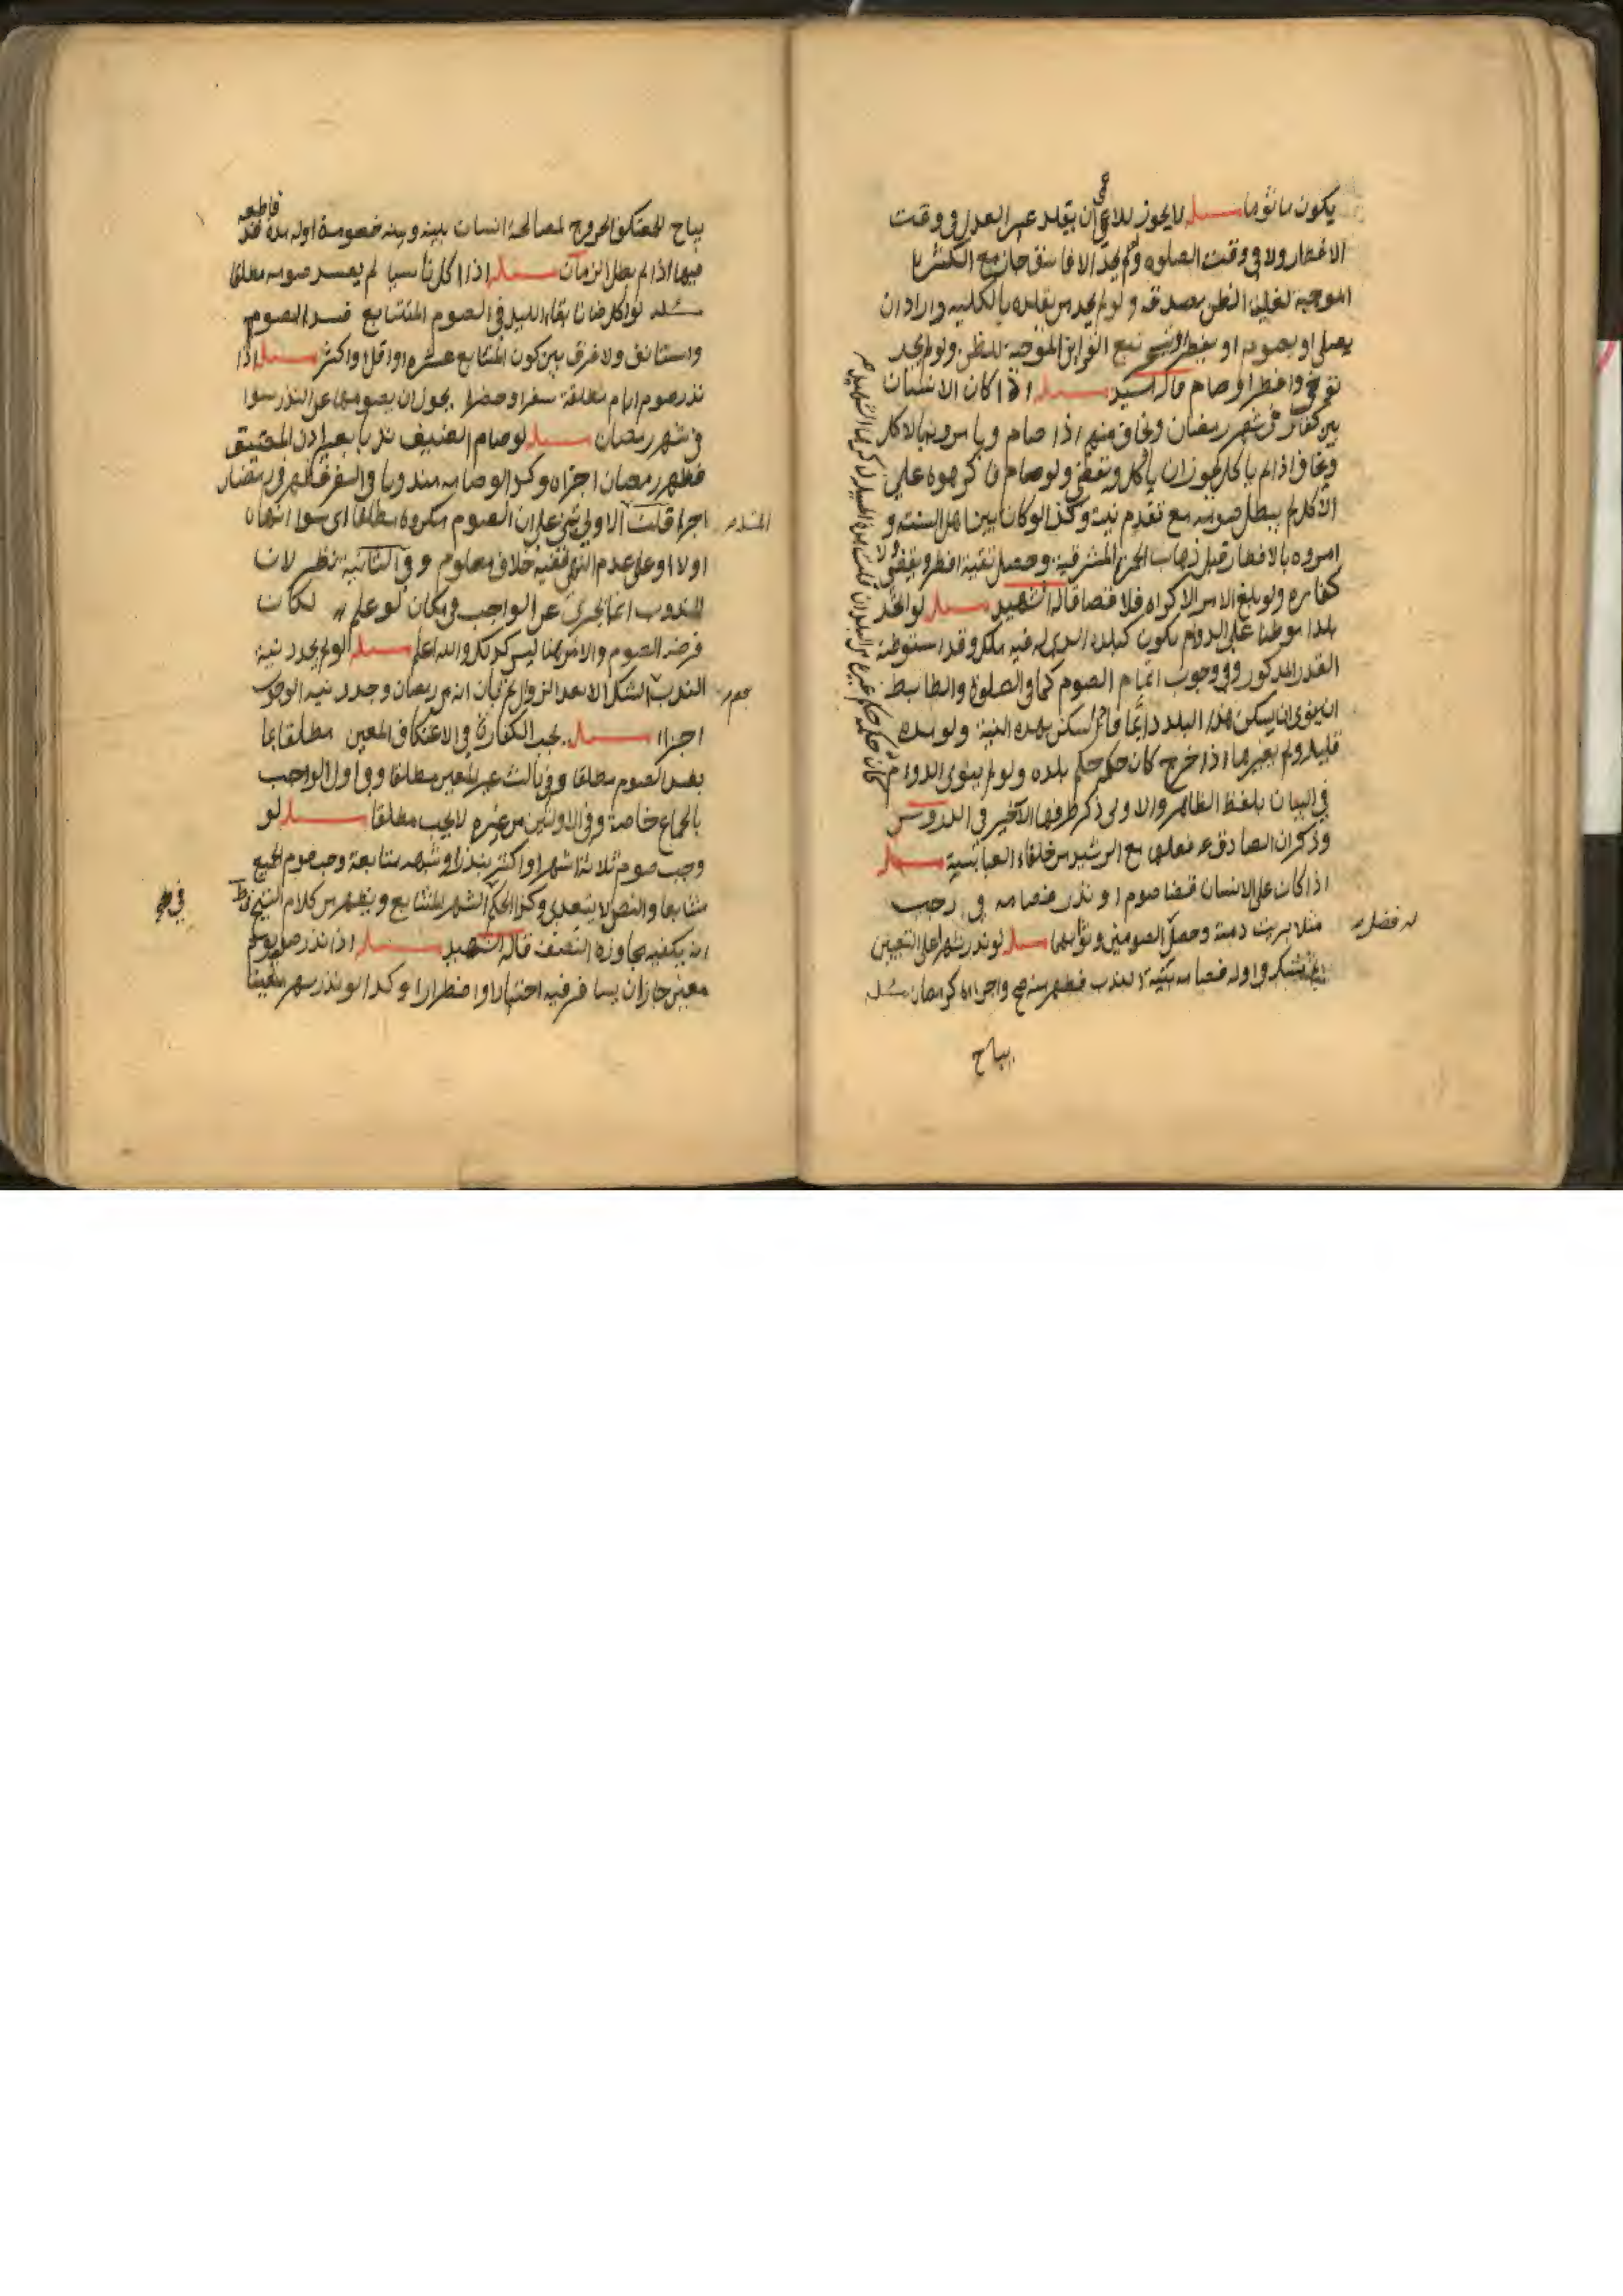 يكون مأثوما مسئلة لا يجوز للاعمى ان يقلد غير العدل في وقت
الافطار ولا في وقت الصلوة ولو لم يجد الا فاسقا جاز مع الكثرة
الموجبة لغلبة الظن بصدقه ولو لم يجد من يقلده بالكلية واراد ان
يصلي او يصوم او يفطر تتبع القراين الموجبة للظن ولو لم يجد
توخى وافطر او صام قاله مسئلة اذا كان الانسان
بين كفار في شهر رمضان ويخاف منهم اذا صام ويامرونه بالاكل
ويخاف اذا لم ياكل يجوز ان ياكل ويقضي ولو صام فاكرهوه على
الاكل لم يبطل صومه مع تقدم نيته وكذا لو كان بين اهل السنة و
امروه بالافطار قبل ذهاب الحمرة المشرقية وحصل تقية افطر ويقضي ولا
كفارة ولو بلغ الامر الاكراه فلا قضا قاله الشهيد مسئلة لو اتخذ
بلدا موطنا على الدوام يكون كبلده الذي له فيه ملك وقد استوطنه
القدر المذكور في وجوب اتمام الصوم كما في الصلوة والضابط
ان ينوي ان يسكن هذا البلد دايما سكن بهذه النية ولو مدة
قليلة ولم يغيرها اذا خرج كان حكمه حكم بلده ولو لم ينوي الدوام
في البيان بلفظ الظاهر والاولى ذكر طرفها الاخير في الدروس
وذكر ان الصادق ع فعلها مع من خلفاء العباسية مسئلة
اذا كان على الانسان قضا صوم او نذر فصامه في رجب
مثلا بريت ذمته وحصل الصومين وثوابهما مسئلة لو نذر شهرا على التعيين
واوله فصامه بنية الندب فظهر منه صح واجزاه كرمضان مسئلة
له فضل
كان حكمه حكم غيره من البلدان قلت هذه المسئلة ذكرها الشهيد
يباح
يباح للمعتكف الخروج لمصالحة انسان بينه وبينه خصومة اوله مدة
فيها اذا لم يطل الزمان مسئلة اذا اكل ناسيا لم يفسد صومه مطلقا
مسئلة لو اكل ظانا بقاء الليل في الصوم المتتابع فسد الصوم
واستانف ولا فرق بين كون المتتابع عشرة او اقل او اكثر مسئلة اذا
نذر صوم ايام معلقة سفرا وحضرا يجوز ان يصومها عن النذر سوا
في شهر رمضان مسئلة لو صام الضيف ندبا بغير اذن المضيف
فظهر رمضان اجزاه وكذا لو صامه مندوبا في السفر فظهر في رمضان
اجزا قلت الاولى تبنى على ان الصوم مكروه مطلقا اي سوا انهاه
اولا او على عدم النهي ففيه خلاف معلوم وفي الثانية نظر لان
المندوب انما يجزى عن الواجب في مكان لو علم لكان
فرضه الصوم والامر هنا ليس كذلك والله اعلم مسئلة لو لم يجدد نية
الندب الشك الا بعد الزوال ثم بان انه من رمضان وجدد نية الوجوب
اجزا مسئلة يجب الكفارة في الاعتكاف المعين مطلقا بما
يفسد الصوم مطلقا وفي ثالث غير المعين مطلقا وفي اول الواجب
بالجماع خاصة وفي الاولتين من غيره لا يجب مطلقا مسئلة لو
وجب صوم ثلاثة اشهر او اكثر بنذر او شبهه متتابعة وجب صوم الجميع
متتابعا والنص لا يتعدى وكذا الحكم الشهر المتتابع ويظهر من كلام الشيخ
انه يكفيه مجاوزة النصف قاله الشهيد مسئلة اذا نذر صوم يوم
معين جاز ان يسافر فيه اختيارا او اضطرارا وكذا لو نذر شهر معينا